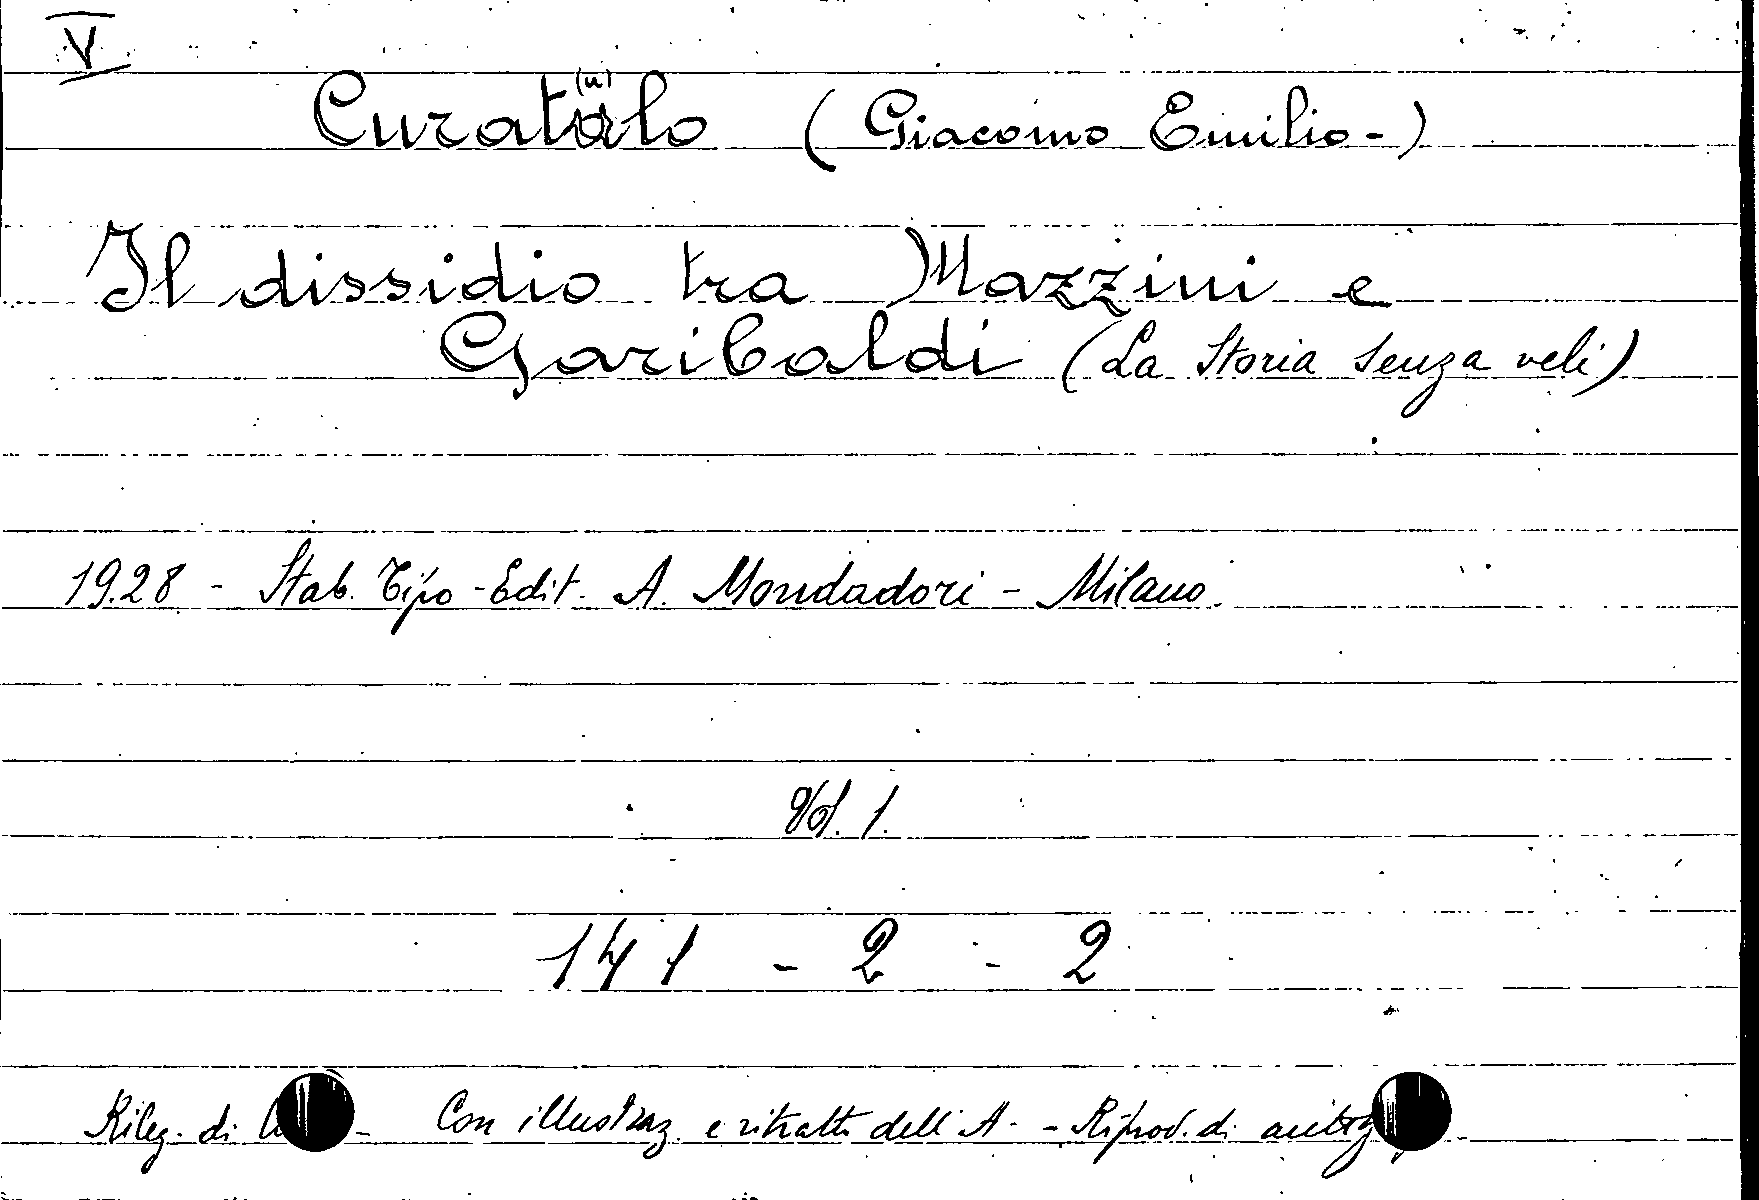 V
Curatulo (Giacomo Emilio-)
Il dissidio tra Mazzini e
Garibaldi (La Storia senza veli)
1928 - Stab. Tipo-Edit. A. Mondadori - Milano.
Vol. 1.
141 - 2 - 2
Rileg. di - Con illustraz. e ritratti dell'A. - Riprod. di